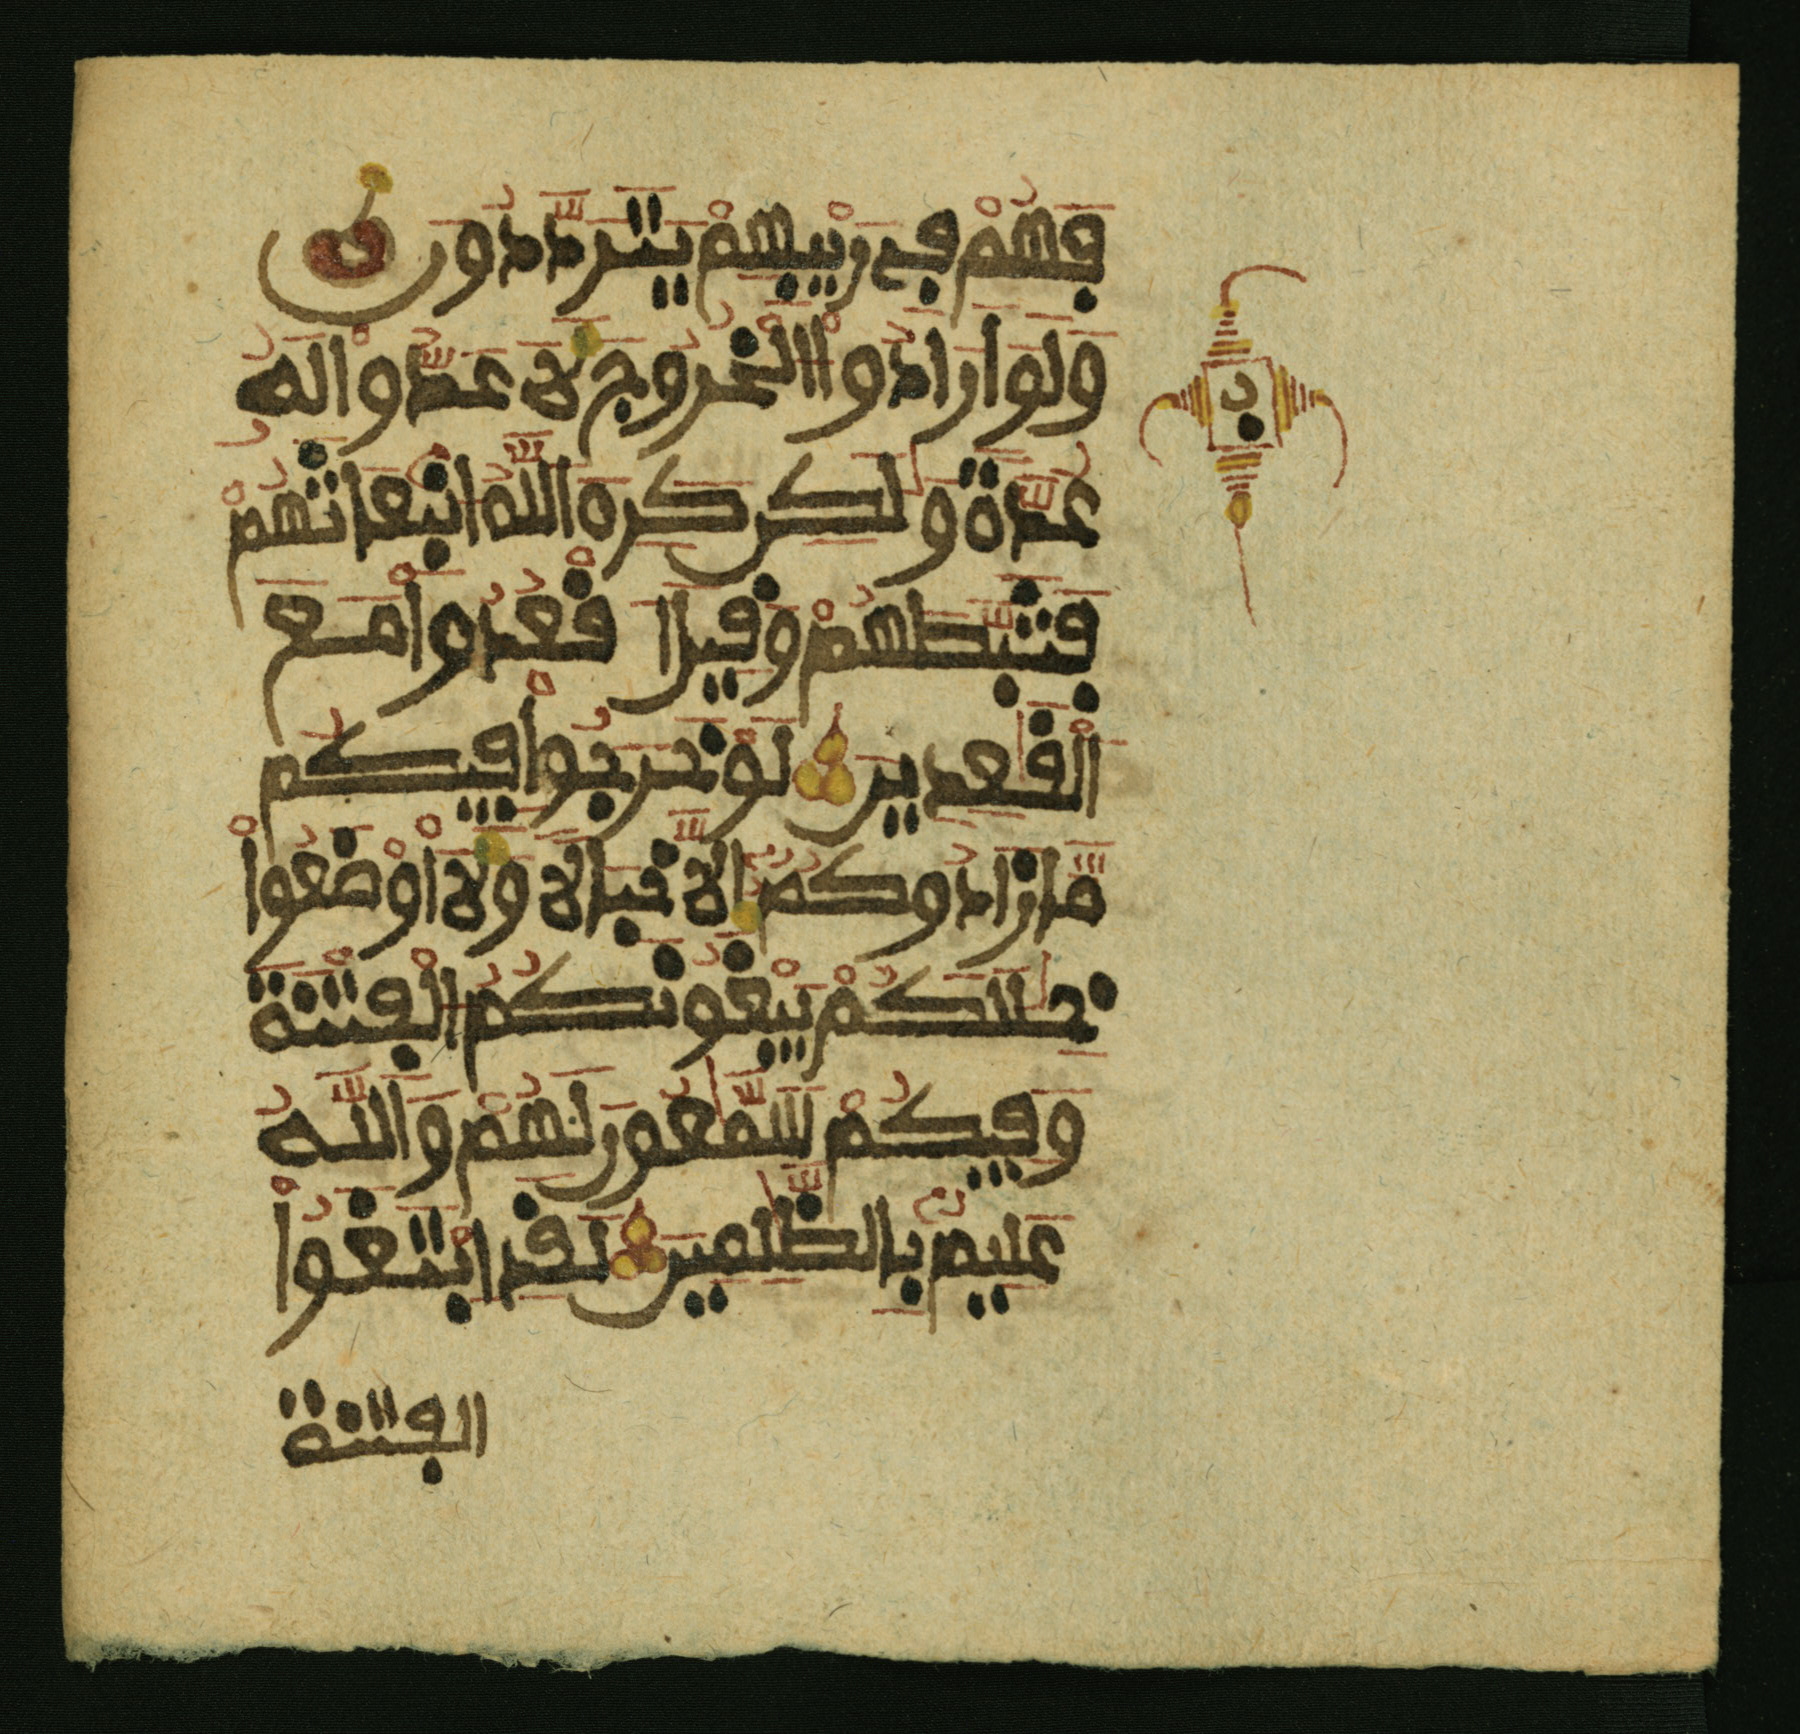 فَهُمْ فِي رَيْبِهِمْ يَتَرَدَّدُونَ
وَلَوْ أَرَادُوا۟ الْخُرُوجَ لَأَعَدُّوا۟ لَهُ
عُدَّةً وَلَٰكِن كَرِهَ اللَّهُ انۢبِعَاثَهُمْ
فَثَبَّطَهُمْ وَقِيلَ اقْعُدُوا۟ مَعَ
الْقَٰعِدِينَ لَوْ خَرَجُوا۟ فِيكُم
مَّا زَادُوكُمْ إِلَّا خَبَالًا وَلَأَوْضَعُوا۟
خِلَٰلَكُمْ يَبْغُونَكُمُ الْفِتْنَةَ
وَفِيكُمْ سَمَّٰعُونَ لَهُمْ وَاللَّهُ
عَلِيمٌۢ بِالظَّٰلِمِينَ لَقَدِ ابْتَغَوُا۟
الفتنة